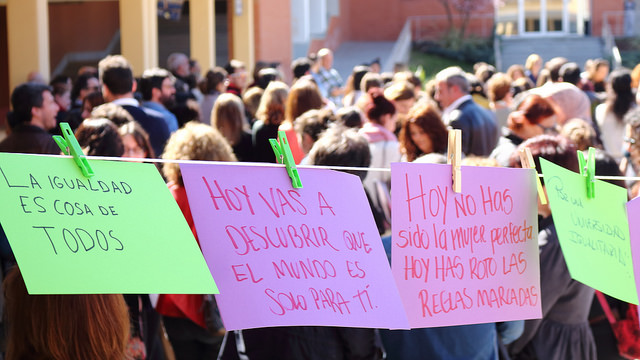 LA IGUALDAD
ES COSA DE
TODOS
HOY VAS A
DESCUBRIR QUE
EL MUNDO ES
SOLO PARA TÍ.
HOY NO HAS
sido la mujer perfecta
HOY HAS ROTO LAS
REGLAS MARCADAS
UNIVERSIDAD
IGUALITARIA